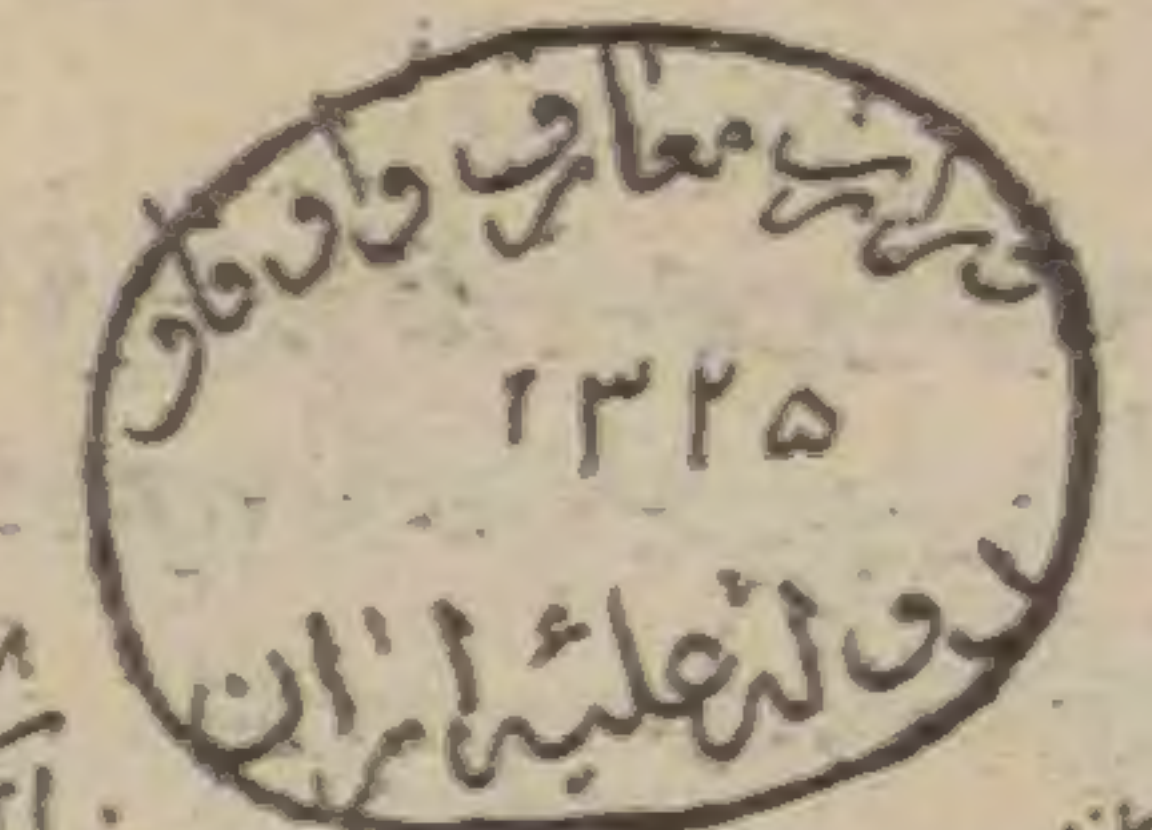 معارف و اوقاف
۱۳۲۵
دولة علیهٔ ایران